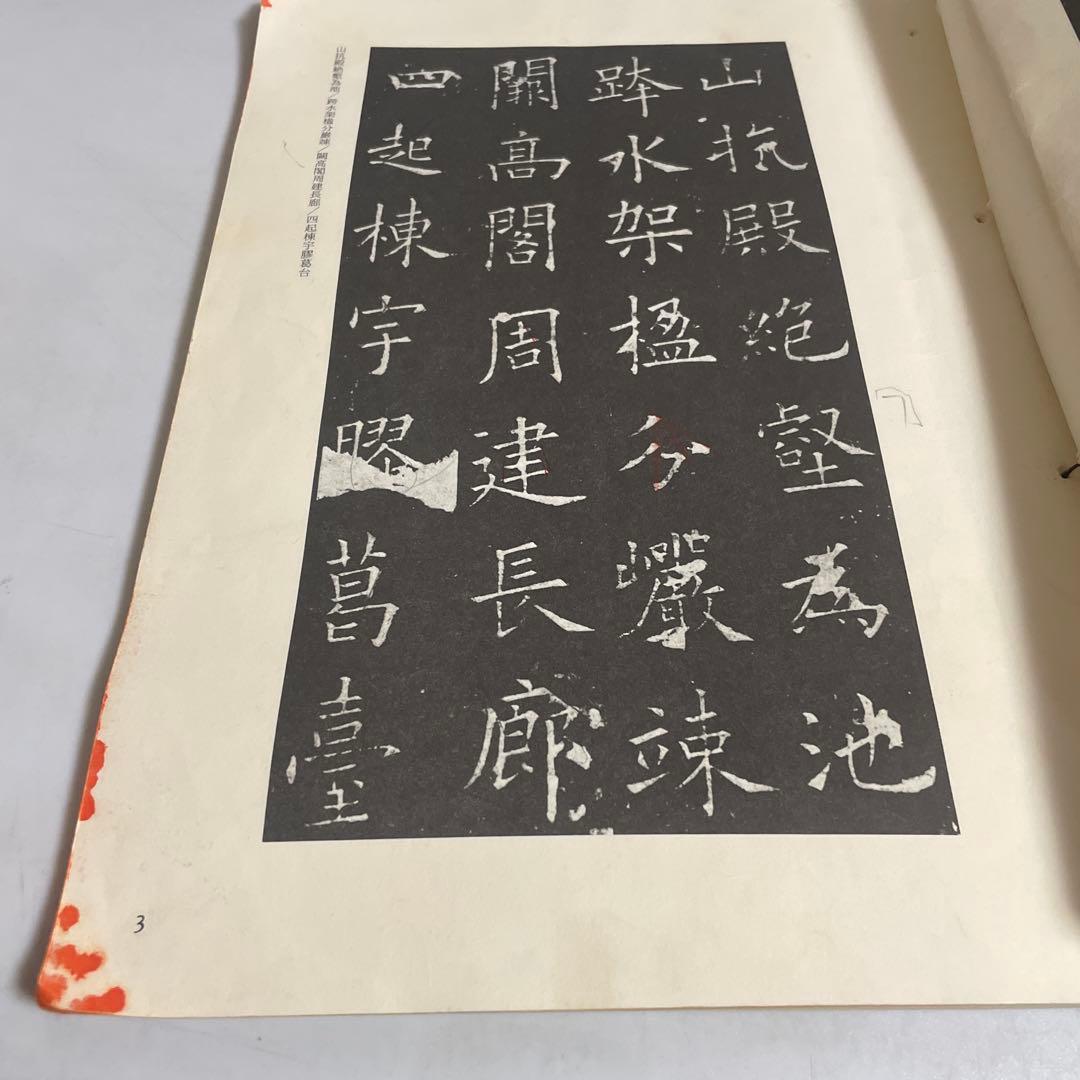 山抗殿絶壑為池
跨水架楹分巖竦
闕高閣周建長廊
四起棟宇膠葛臺
山抗殿絶壑為池／跨水架楹分巖竦／闕高閣周建長廊／四起棟宇膠葛台
3